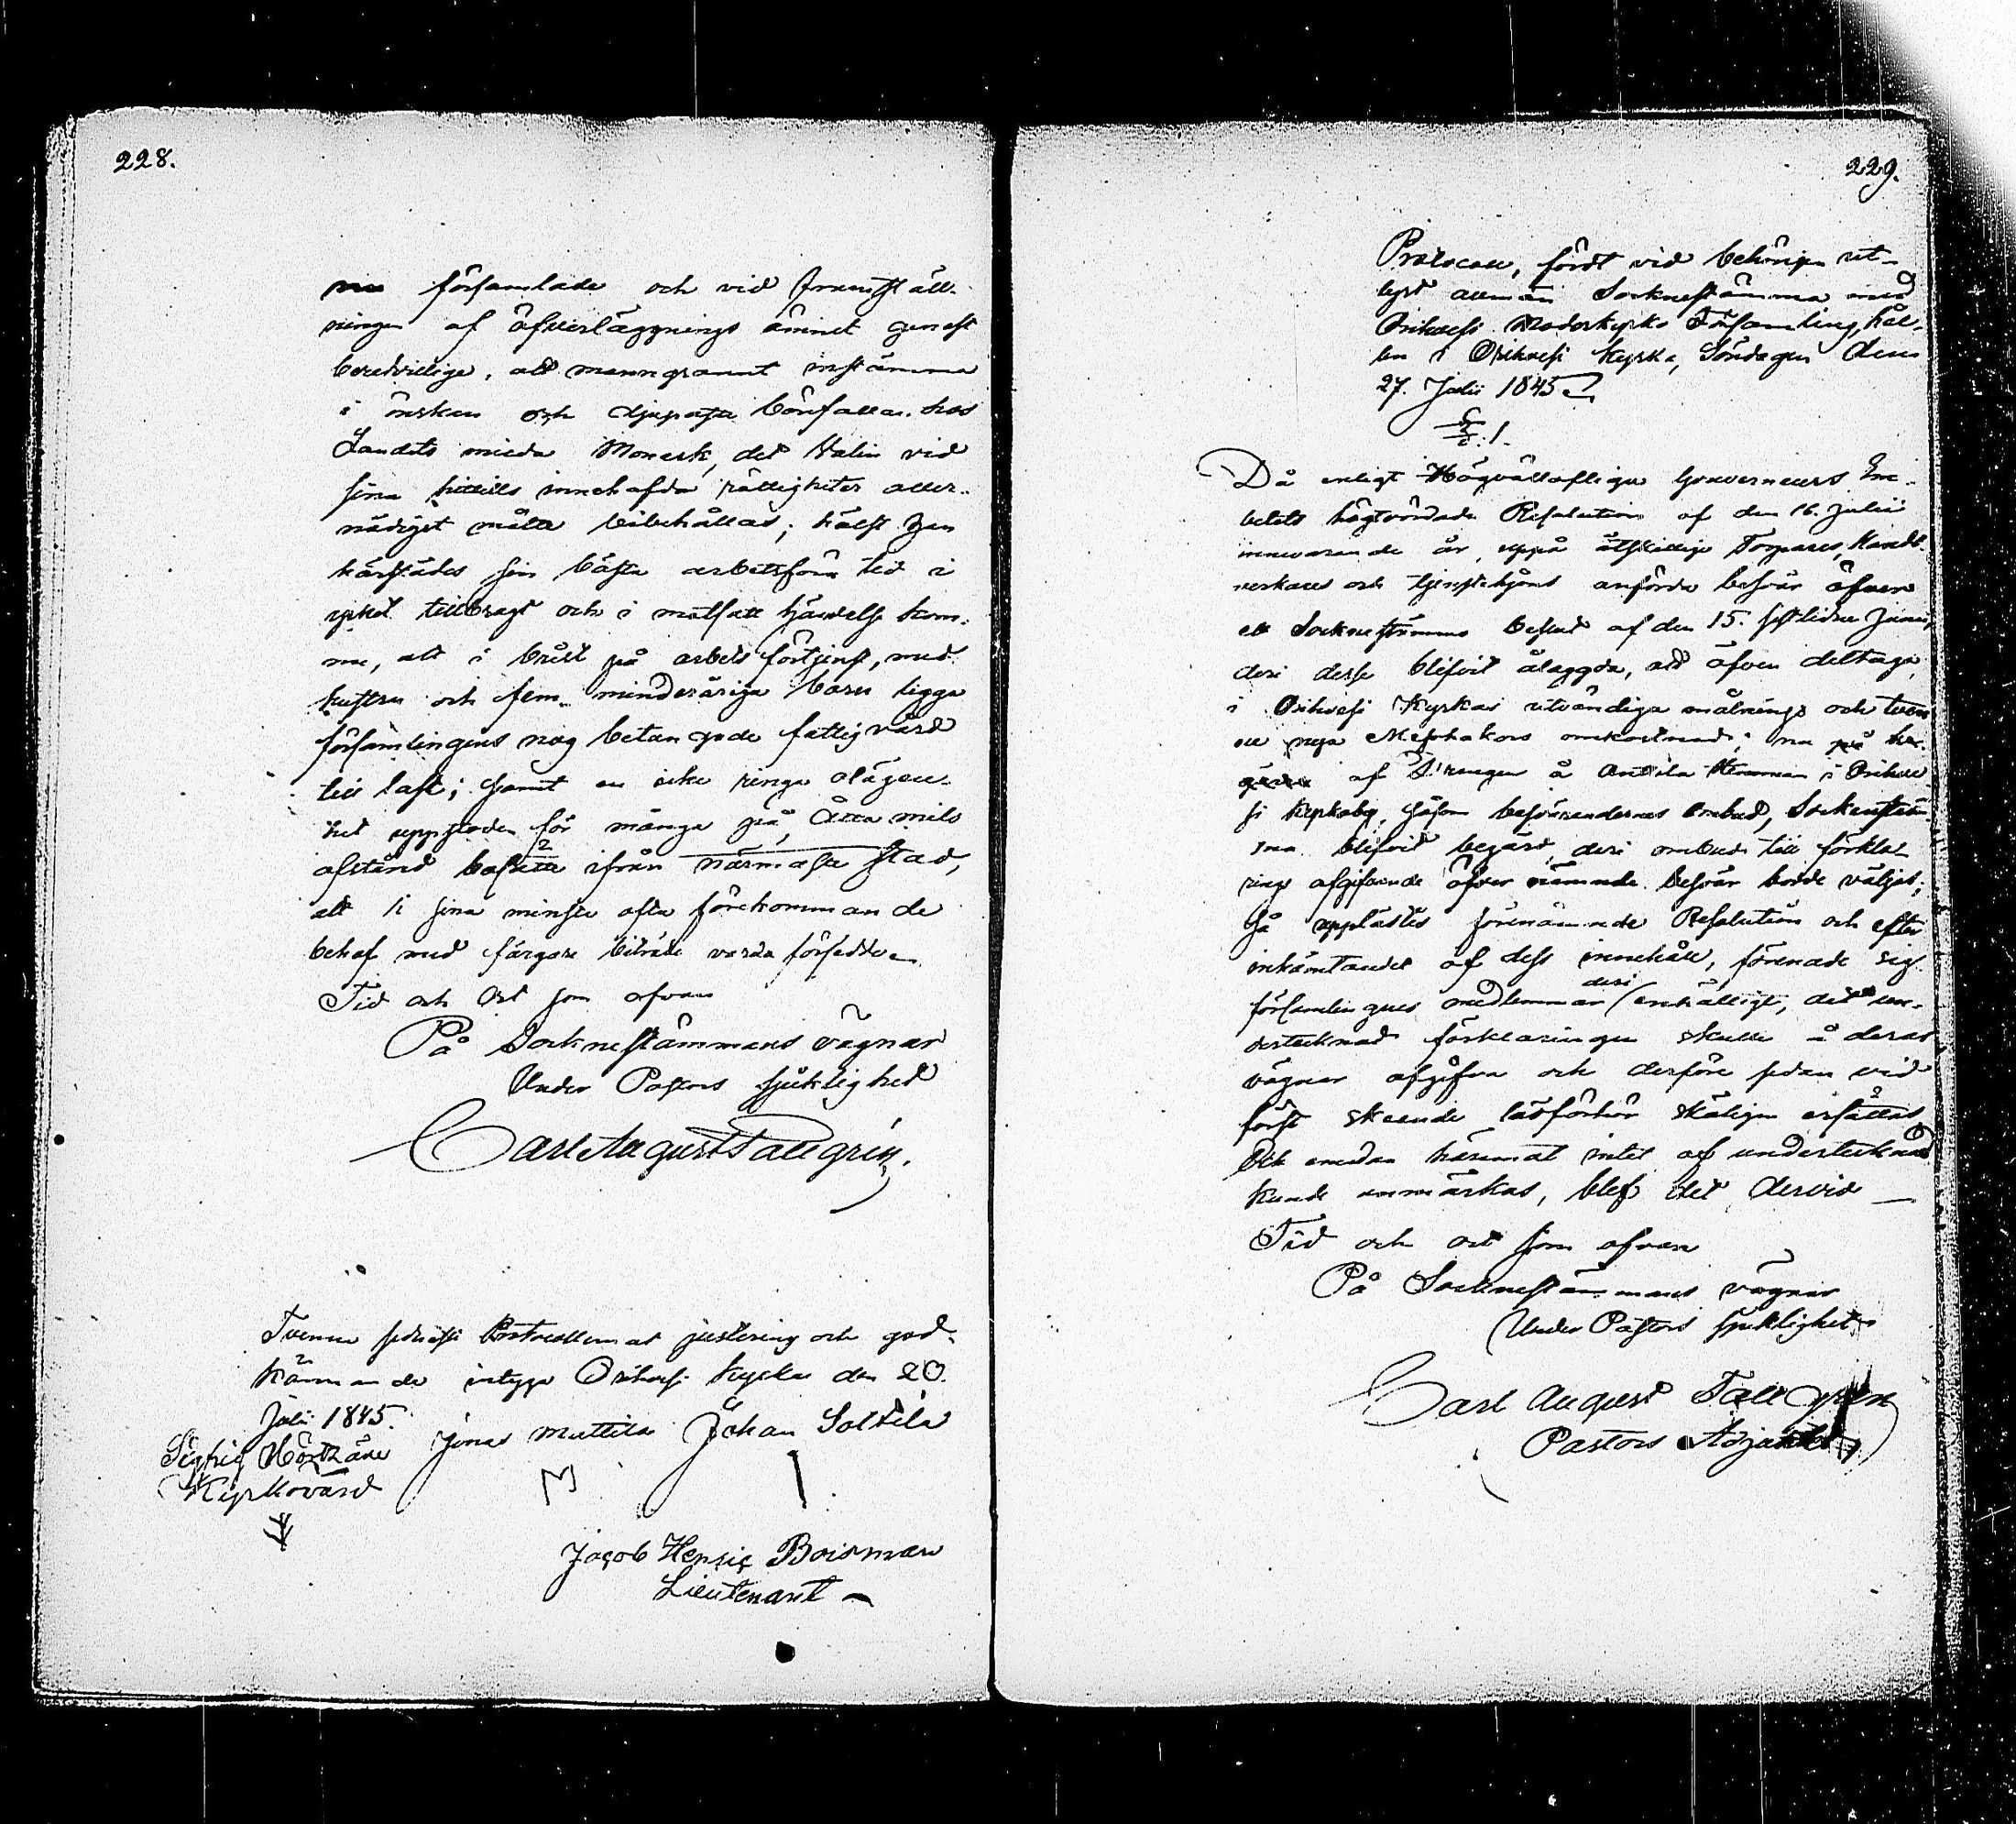 228.
församlade och vid framställ-
ningen af öfverläggnings ämnet genast
beredvillige, att manngrannt instämma
i önskan och djupaste bönfallan hos
Landets milda Monark, det Halin vid
sina hittills innehafda rättigheter aller-
nådigst måtte bibehållas; hälst han
härstädes sin bästa arbetsföra tid i
yrket tillbragt och i motsatt händelse kom-
me, att i brist på arbets förtjenst, med
hustru och fem minderåriga barn ligga
församlingens nog betungade fattigvård
till last; samt en icke ringa olägen-
het uppstode för många på Åtta mils
afstånd bosatte ifrån närmaste stad,
att i sina minsta ofta förekommande
behof med färgare biträde varda försedde
Tid och Ort som ofvan
På Socknestämmans vägnar
Under Pastors sjuklighet
Carl August Tallgrén.
Tvenne Protocollernas justering och god-
kännande intyga Orihvesi kyrka den 20.
Julii 1845.
Jonas Mattila Johan Soltila
Kyrkovärd
Jacob Henric Boisman
Lieutenant
229.
Protocoll, fördt vid behörigen ut-
lyst allmän Socknestämma med
Orihvesi Moderkyrko Församling, hål-
len i Orihvesi kyrka, Söndagen den
27. Julii 1845
§. 1.
Då enligt Högvällofliga Gouverneurs Em-
betets högtvördade Resolution af den 16. Julii
innevarande år, uppå åtskillige Torpares, Handt-
verkares och tjenstehjons anförda besvär öfver
ett Socknestämmo beslut af den 15. sistlidne Junii,
deri desse blifvit ålaggda, att äfven deltaga
i Orihvesi Kyrkas utvändiga målnings och tvenne
nya Messhakars omkostnad; nu på
af å Anttila Hemman i Orihve-
si kyrkoby, såsom besvärandernas ombud, Sockenstäm-
ma blifvit begärd, deri ombud till förkla-
rings afgifvande öfver nämnde besvär borde väljas;
så upplästes förenämnde Resolution och efter
inhämtandet af dess innehåll, förenade sig
församlingens medlemmar deri enhälligt, det un-
dertecknad förklaringen skulle å deras
vägnar afgifva och derföre sedan vid
först skeende läsförhör skäligen ersättas
Och emedan häremot intet af undertecknad
kunde anmärkas, blef det dervid
Tid och ort som ofvan
På Socknestämmans vägnar
Under Pastors sjuklighet
Carl August Tallgrén
Pastors Adjunkt